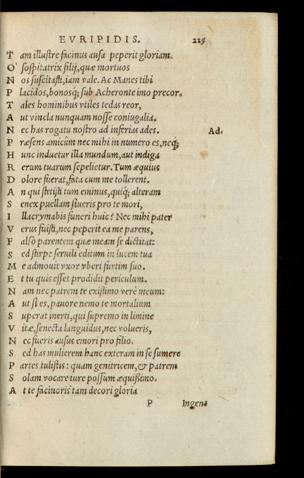 EVRIPIDIS. 225
T am illustre facinus ausa peperit gloriam.
O' sospitatrix filij, quæ mortuos
N os suscitasti, iam vale. Ac Manes tibi
P lacidos, bonosq; sub Acheronte imo precor.
T ales hominibus vtiles tedas reor,
A ut vincla nunquam nosse coniugalia.
N ec has rogatu nostro ad inferias ades. Ad.
P ræsens amicûm nec mihi in numero es, neq;
H unc induetur illa mundum, aut indiga
R erum tuarum sepelietur. Tum æquius
D olore fuerat, fata cum me tollerent.
A n qui stetisti tum eminus, quiq; alteram
S enex puellam siueris pro te mori,
I llacrymabis funeri huic? Nec mihi pater
V erus fuisti, nec peperit ea me parens,
F alsò parentem quæ meam se dictitat:
S ed stirpe seruili editum in lucem tua
M e admouit vxor vberi furtim suo.
E t tu quis esses prodidit periculum.
N am nec patrem te existimo verè meum:
A ut si es, pauore nemo te mortalium
S uperat inerti, qui supremo in limine
V itæ, senecta languidus, nec volueris,
N ec fueris ausus emori pro filio.
S ed has mulierem hanc exteram in se sumere
P artes tulistis: quam genitricem, & patrem
S olam vocare iure possum æquißimo.
A t te facinoris tam decori gloria
P Ingens